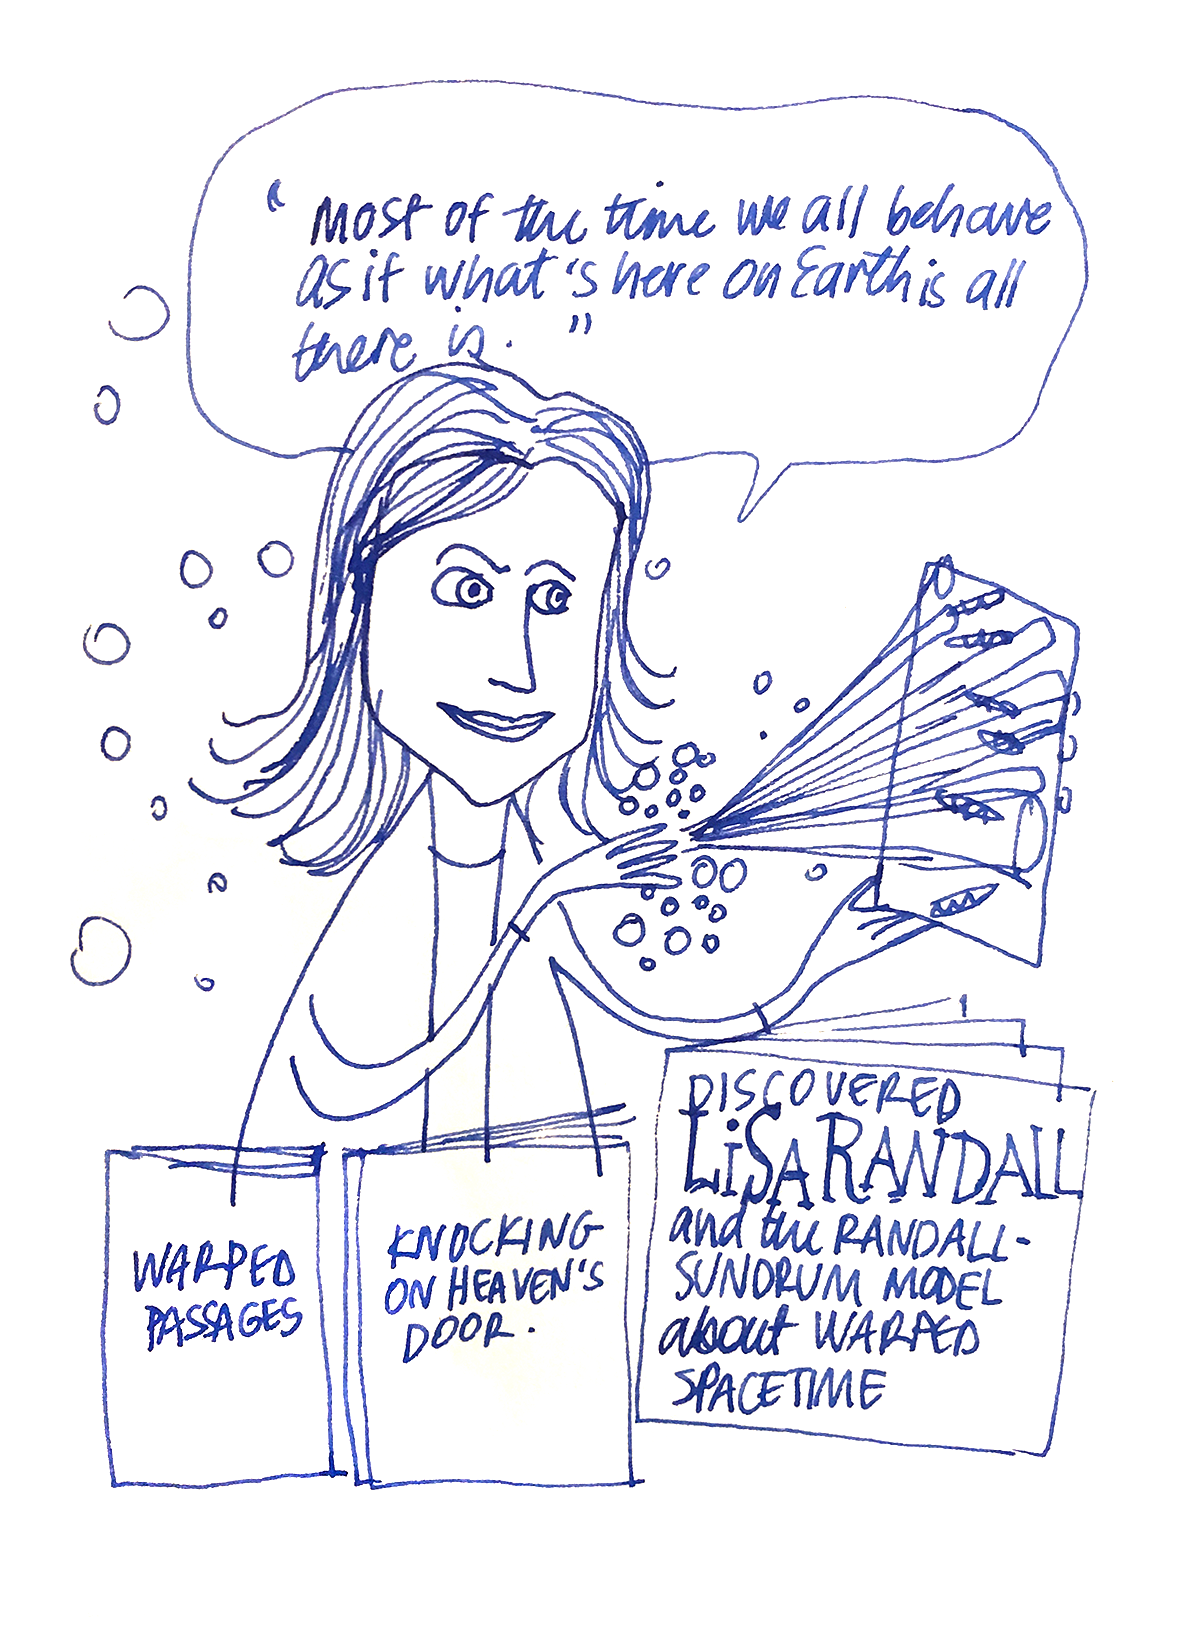 “ Most of the time we all behave
as if what's here on Earth is all
there is. ”
WARPED
PASSAGES
KNOCKING
ON HEAVEN'S
DOOR.
DISCOVERED
LiSA RANDALL
and the RANDALL-
SUNDRUM MODEL
about WARPED
SPACETIME